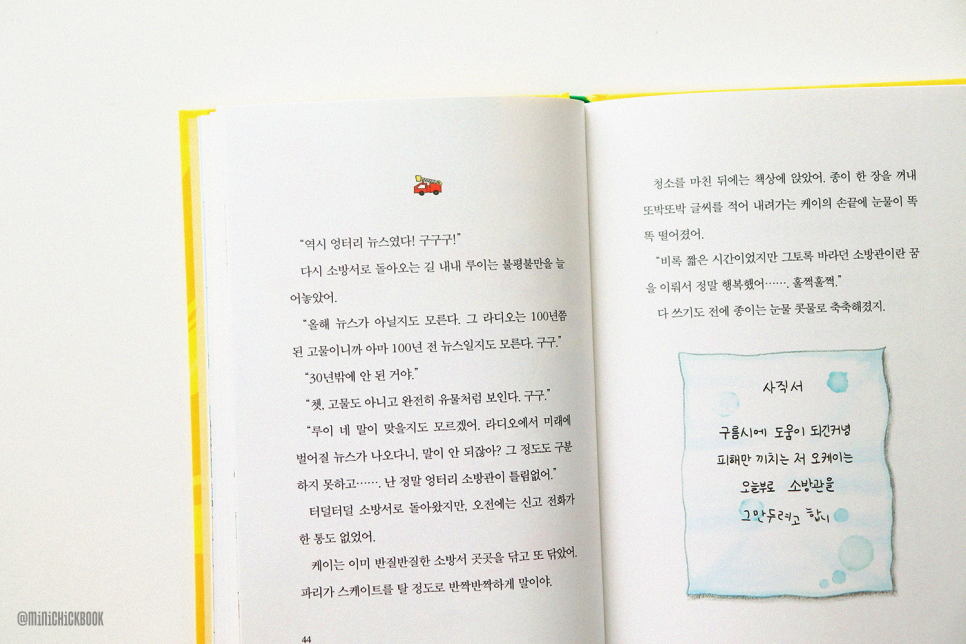 “역시 엉터리 뉴스였다! 구구구!”
다시 소방서로 돌아오는 길 내내 루이는 불평불만을 늘
어놓았어.
“올해 뉴스가 아닐지도 모른다. 그 라디오는 100년쯤
된 고물이니까 아마 100년 전 뉴스일지도 모른다. 구구.”
“30년밖에 안 된 거야.”
“쳇, 고물도 아니고 완전히 유물처럼 보인다. 구구.”
“루이 네 말이 맞을지도 모르겠어. 라디오에서 미래에
벌어질 뉴스가 나오다니, 말이 안 되잖아? 그 정도도 구분
하지 못하고……. 난 정말 엉터리 소방관이 틀림없어.”
터덜터덜 소방서로 돌아왔지만, 오전에는 신고 전화가
한 통도 없었어.
케이는 이미 반질반질한 소방서 곳곳을 닦고 또 닦았어.
파리가 스케이트를 탈 정도로 반짝반짝하게 말이야.
44
청소를 마친 뒤에는 책상에 앉았어. 종이 한 장을 꺼내
또박또박 글씨를 적어 내려가는 케이의 손끝에 눈물이 똑
똑 떨어졌어.
“비록 짧은 시간이었지만 그토록 바라던 소방관이란 꿈
을 이뤄서 정말 행복했어……. 훌쩍훌쩍.”
다 쓰기도 전에 종이는 눈물 콧물로 축축해졌지.
사직서
구름시에 도움이 되긴커녕
피해만 끼치는 저 오케이는
오늘부로 소방관을
그만두려고 합니
@MINICHICKBOOK